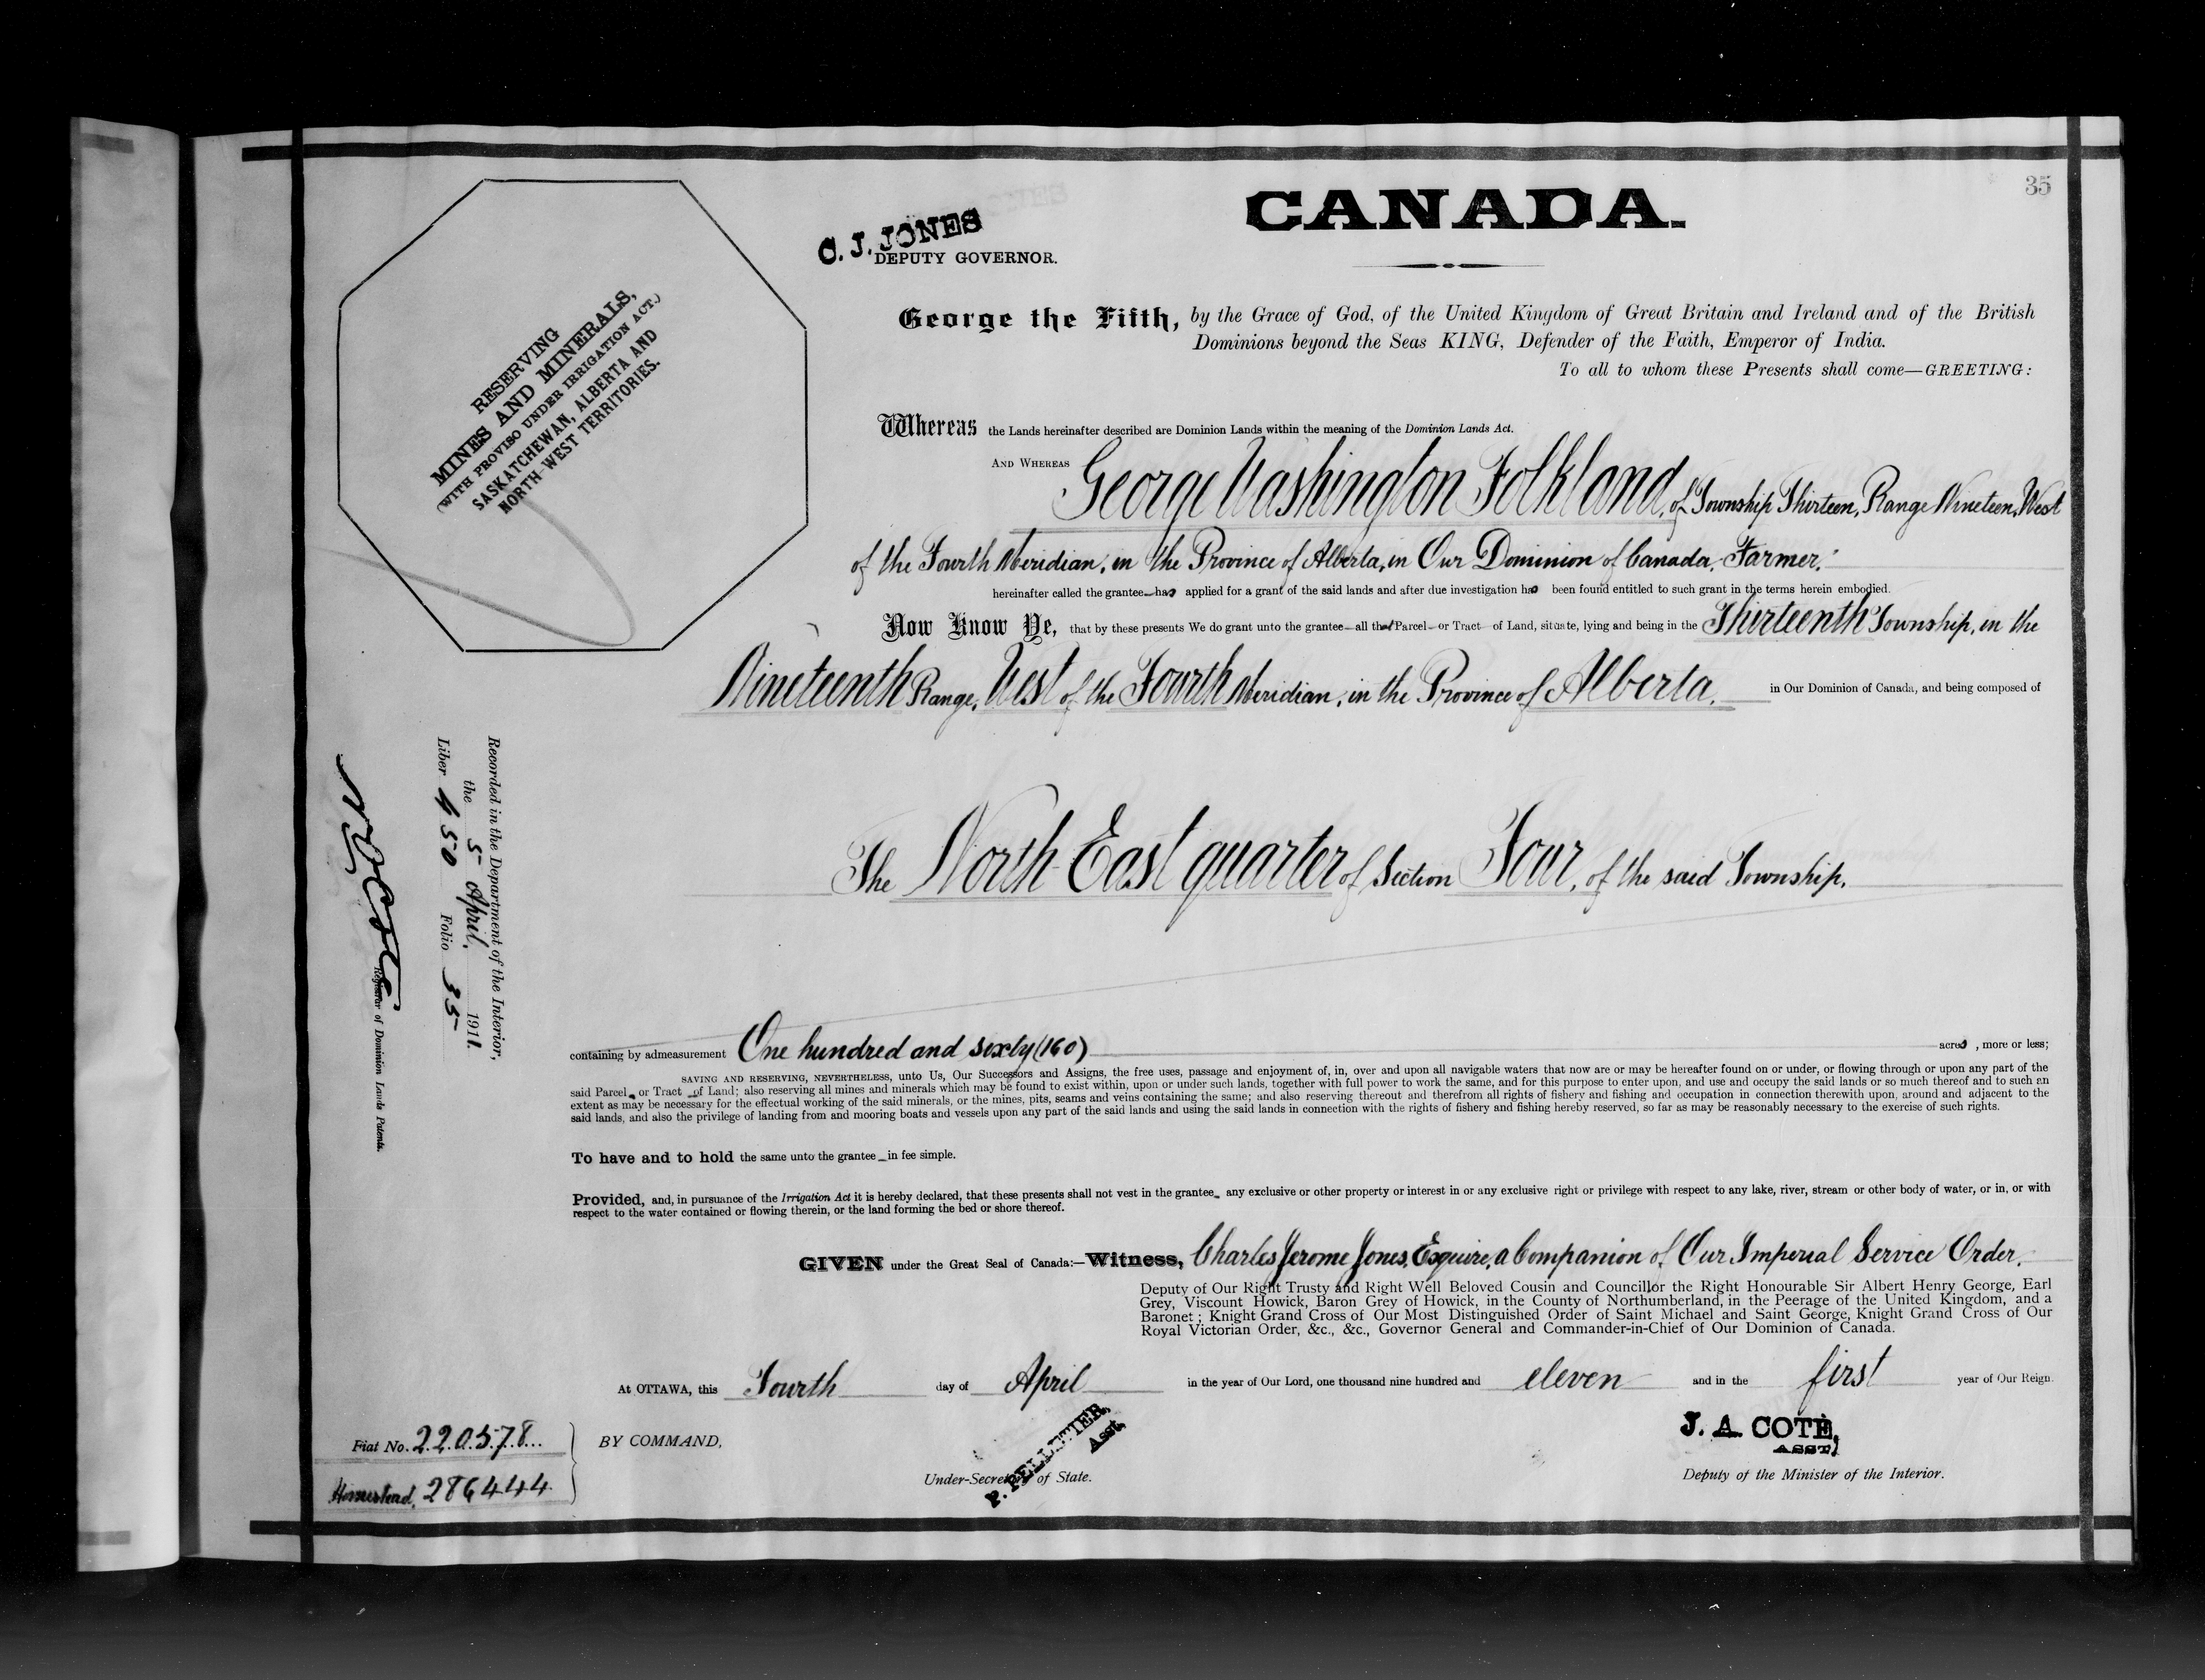 35
CANADA.
C. J. JONES
DEPUTY GOVERNOR.
RESERVING
MINES AND MINERALS,
(WITH PROVISO UNDER IRRIGATION ACT.)
SASKATCHEWAN, ALBERTA AND
NORTH-WEST TERRITORIES.
George the Fifth, by the Grace of God, of the United Kingdom of Great Britain and Ireland and of the British
Dominions beyond the Seas KING, Defender of the Faith, Emperor of India.
To all to whom these Presents shall come—GREETING:
Whereas the Lands hereinafter described are Dominion Lands within the meaning of the Dominion Lands Act.
AND WHEREAS George Washington Folkland, of Township Thirteen, Range Nineteen, West
of the Fourth Meridian, in the Province of Alberta, in Our Dominion of Canada, Farmer,
hereinafter called the grantee—has applied for a grant of the said lands and after due investigation has been found entitled to such grant in the terms herein embodied.
Now Know Ye, that by these presents We do grant unto the grantee—all that Parcel—or Tract—of Land, situate, lying and being in the Thirteenth Township, in the
Nineteenth Range, West of the Fourth Meridian, in the Province of Alberta, in Our Dominion of Canada, and being composed of
The North East quarter of Section Four, of the said Township.
containing by admeasurement One hundred and sixty (160) acres, more or less;
SAVING AND RESERVING, NEVERTHELESS, unto Us, Our Successors and Assigns, the free uses, passage and enjoyment of, in, over and upon all navigable waters that now are or may be hereafter found on or under, or flowing through or upon any part of the
said Parcel or Tract of Land; also reserving all mines and minerals which may be found to exist within, upon or under such lands, together with full power to work the same, and for this purpose to enter upon, and use and occupy the said lands or so much thereof and to such an
extent as may be necessary for the effectual working of the said minerals, or the mines, pits, seams and veins containing the same; and also reserving thereout and therefrom all rights of fishery and fishing and occupation in connection therewith upon, around and adjacent to the
said lands, and also the privilege of landing from and mooring boats and vessels upon any part of the said lands and using the said lands in connection with the rights of fishery and fishing hereby reserved, so far as may be reasonably necessary to the exercise of such rights.
To have and to hold the same unto the grantee—in fee simple.
Provided, and, in pursuance of the Irrigation Act it is hereby declared, that these presents shall not vest in the grantee any exclusive or other property or interest in or any exclusive right or privilege with respect to any lake, river, stream or other body of water, or in, or with
respect to the water contained or flowing therein, or the land forming the bed or shore thereof.
GIVEN under the Great Seal of Canada:—Witness, Charles Jerome Jones, Esquire, a Companion of Our Imperial Service Order,
Deputy of Our Right Trusty and Right Well Beloved Cousin and Councillor the Right Honourable Sir Albert Henry George, Earl
Grey, Viscount Howick, Baron Grey of Howick, in the County of Northumberland, in the Peerage of the United Kingdom, and a
Baronet; Knight Grand Cross of Our Most Distinguished Order of Saint Michael and Saint George, Knight Grand Cross of Our
Royal Victorian Order, &c., &c., Governor General and Commander-in-Chief of Our Dominion of Canada.
At OTTAWA, this Fourth day of April in the year of Our Lord, one thousand nine hundred and eleven and in the first year of Our Reign.
BY COMMAND,
P. PELLETIER,
Asst.
Under-Secretary of State.
J. A. COTÉ,
ASST.
Deputy of the Minister of the Interior.
Fiat No. 220578
Homestead, 286444
Recorded in the Department of the Interior,
the 5 April, 1911.
Liber 450 Folio 35
Registrar of Dominion Lands Patents.